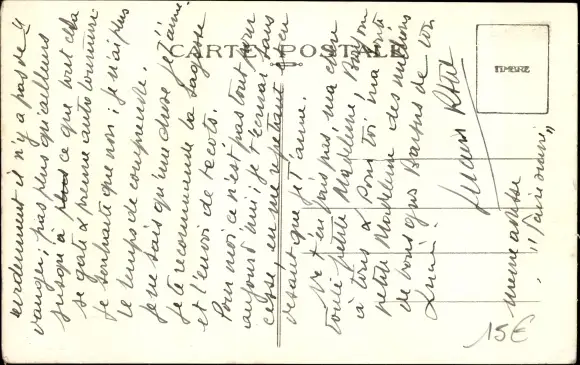 CARTE POSTALE
TIMBRE
il n'y a pas de
vanger, pas plus qu'ailleurs
jusqu'à ce que tout cela
se gate & prenne autre tournure.
Je souhaite que non ; je n'ai plus
le temps de comprendre.
Je ne sais qu'une chose je t'aime.
Je te recommande la sagesse
et l'envoi de
Pour moi ce n'est pas tout pour
aujourd'hui ; je t'écrirai sans
cesse en me répétant et en
disant que je t'aime.
Ne t'en fais pas, ma chère
toute petite Madeleine, Bonjour
à tous & pour toi ma toute
petite Madeleine des millions
de bons gros baisers de ton
Lucien
même adresse
15€